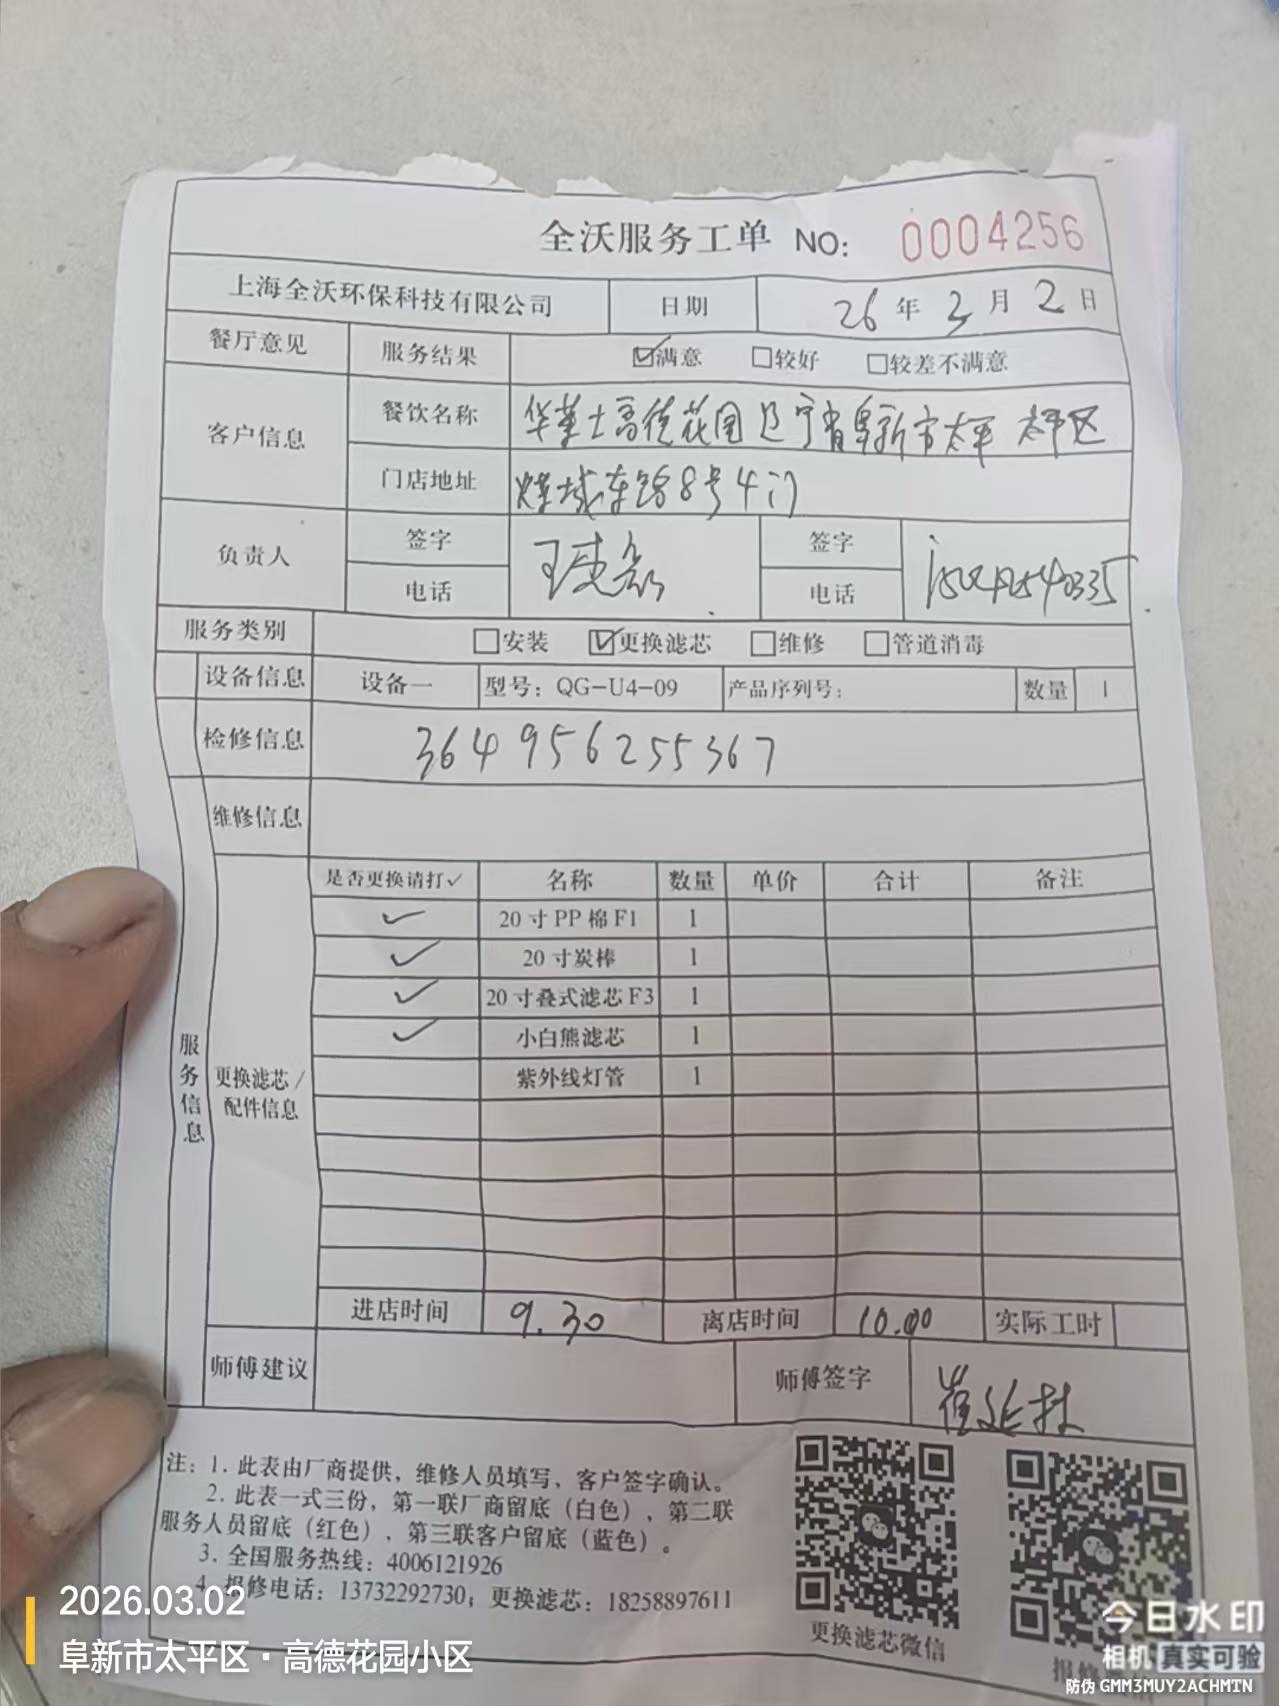 全沃服务工单 NO: 0004256
上海全沃环保科技有限公司 日期 26年3月2日
餐厅意见 服务结果 ☑满意 □较好 □较差不满意
客户信息 餐饮名称 华莱士高德花园 辽宁省阜新市太平 太平区
门店地址 煤城东路8号4门
负责人 签字 签字
电话 电话
服务类别 □安装 ☑更换滤芯 □维修 □管道消毒
设备信息 设备一 型号：QG-U4-09 产品序列号： 数量 1
检修信息 364956255367
维修信息
服务信息
更换滤芯/配件信息
是否更换请打✓ 名称 数量 单价 合计 备注
✓ 20寸PP棉F1 1
✓ 20寸炭棒 1
✓ 20寸叠式滤芯F3 1
✓ 小白熊滤芯 1
紫外线灯管 1
进店时间 9.30 离店时间 10.00 实际工时
师傅建议 师傅签字 崔延林
注：1. 此表由厂商提供，维修人员填写，客户签字确认。
2. 此表一式三份，第一联厂商留底（白色），第二联
服务人员留底（红色），第三联客户留底（蓝色）。
3. 全国服务热线：4006121926
4. 报修电话：13732292730；更换滤芯：18258897611
更换滤芯微信
2026.03.02
阜新市太平区·高德花园小区
今日水印
相机 真实可验
防伪 GMM3MUY2ACHMTN